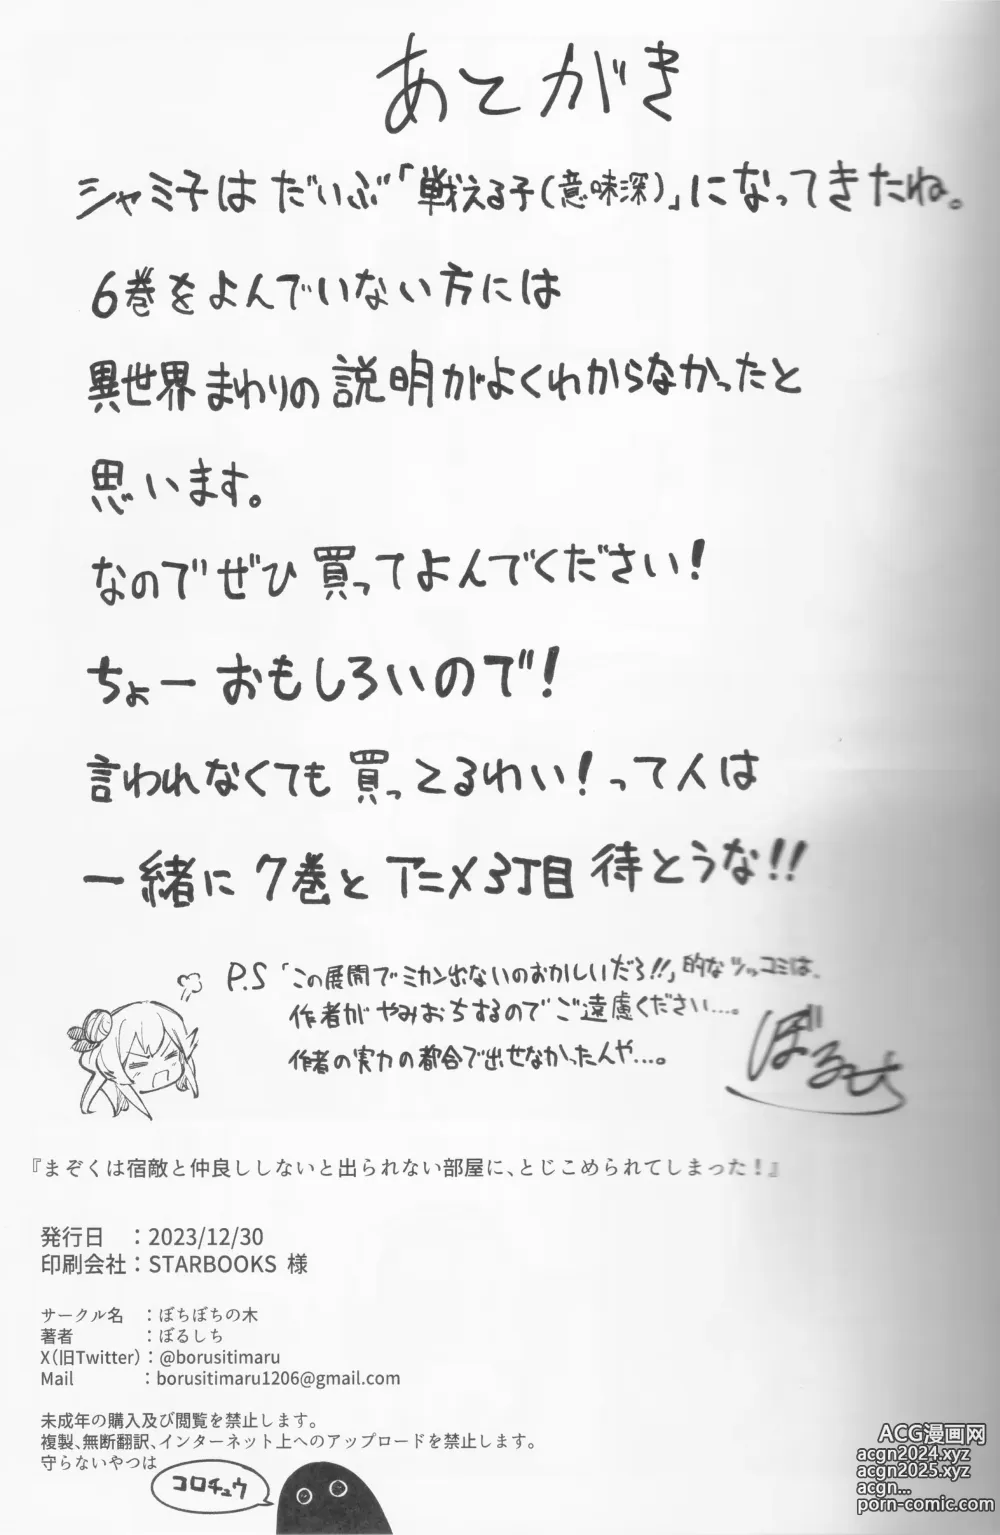 あとがき
シャミ子は だいぶ「戦える子(意味深)」になってきたね。
6巻をよんでいない方には
異世界まわりの説明がよくわからなかったと
思います。
なのでぜひ買ってよんでください!
ちょーおもしろいので!
言われなくても買ってるわい!って人は
一緒に7巻とアニメ3丁目待とうな!!
P.S「この展開でミカン出ないのおかしいだろ!!」的なツッコミは、
作者がやみおちするのでご遠慮ください…。
作者の実力の都合で出せなかったんや…。
ぼるしち
『まぞくは宿敵と仲良ししないと出られない部屋に、とじこめられてしまった!』
発行日 :2023/12/30
印刷会社:STARBOOKS 様
サークル名 :ぼちぼちの木
著者 :ぼるしち
X(旧Twitter):@borusitimaru
Mail :borusitimaru1206@gmail.com
未成年の購入及び閲覧を禁止します。
複製、無断翻訳、インターネット上へのアップロードを禁止します。
守らないやつは
コロチュウ
ACG漫画网
acgn2024.xyz
acgn2025.xyz
acgn...
porn-comic.com